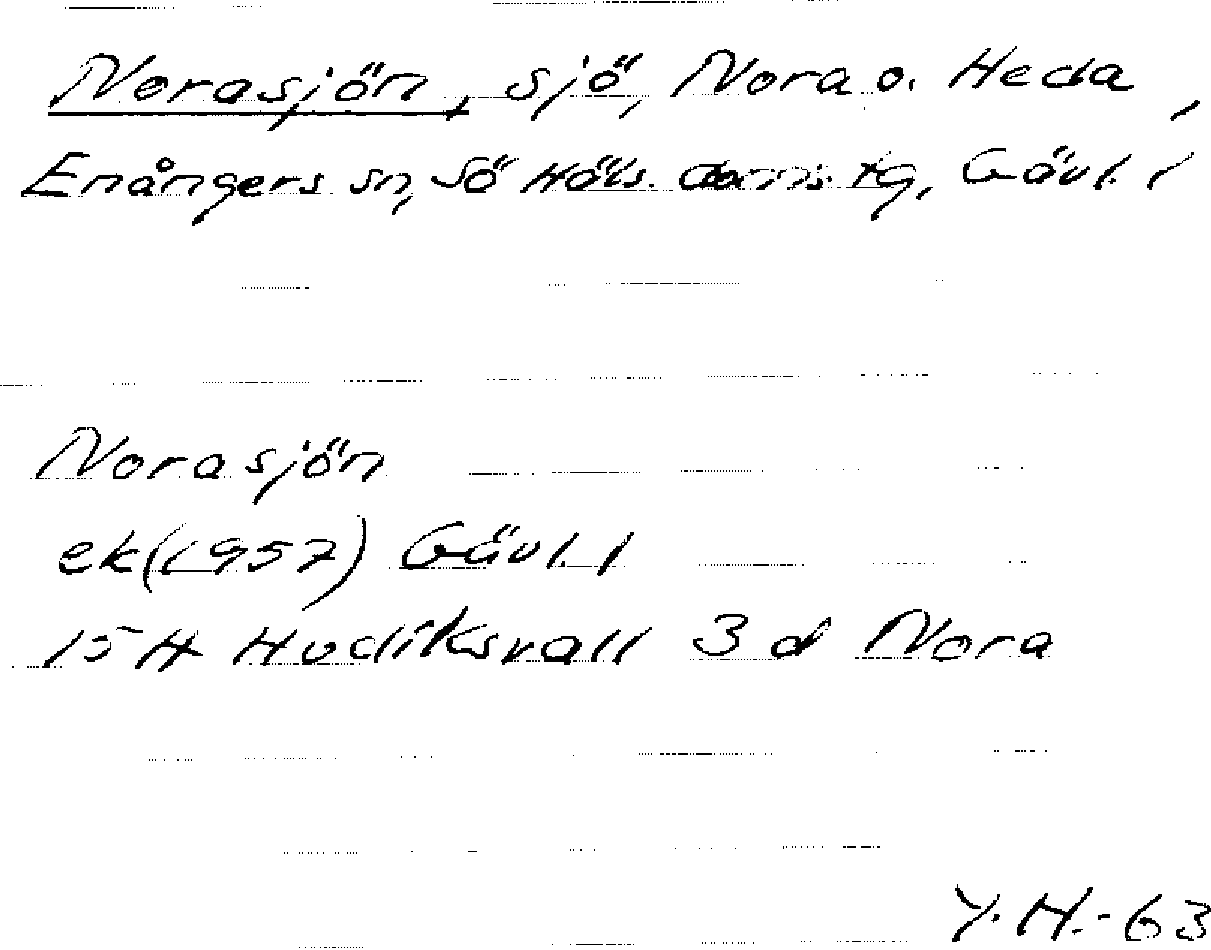 Norasjön, sjö, Nora o. Heda,
Enångers sn, Sö Häls. doms. tg, Gävl. l
Norasjön
ek(1957) Gävl. l
15 H Hudiksvall 3 d Nora
Y.H.-63